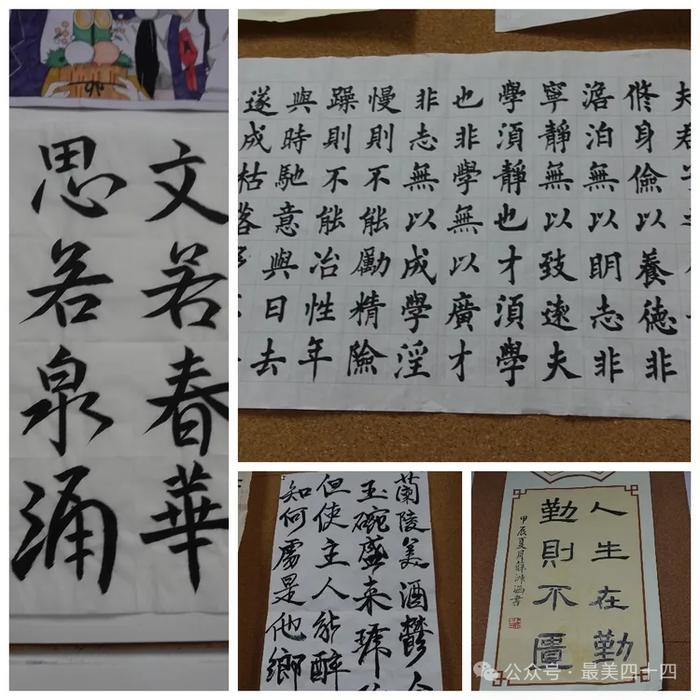 文若春華
思若泉涌
夫君
脩身儉以養德非
澹泊無以眀志非
寧靜無以致遠夫
學須靜也才須學
也非學無以廣才
非志無以成學淫
慢則不能勵精險
躁則不能冶性年
與時馳意與日去
遂成枯落
蘭陵美酒鬱金
玉碗盛来琥
但使主人能醉
知何處是他鄉
人生在勤
勤則不匱
甲辰夏月薛沛涵書
公众号·最美四十四